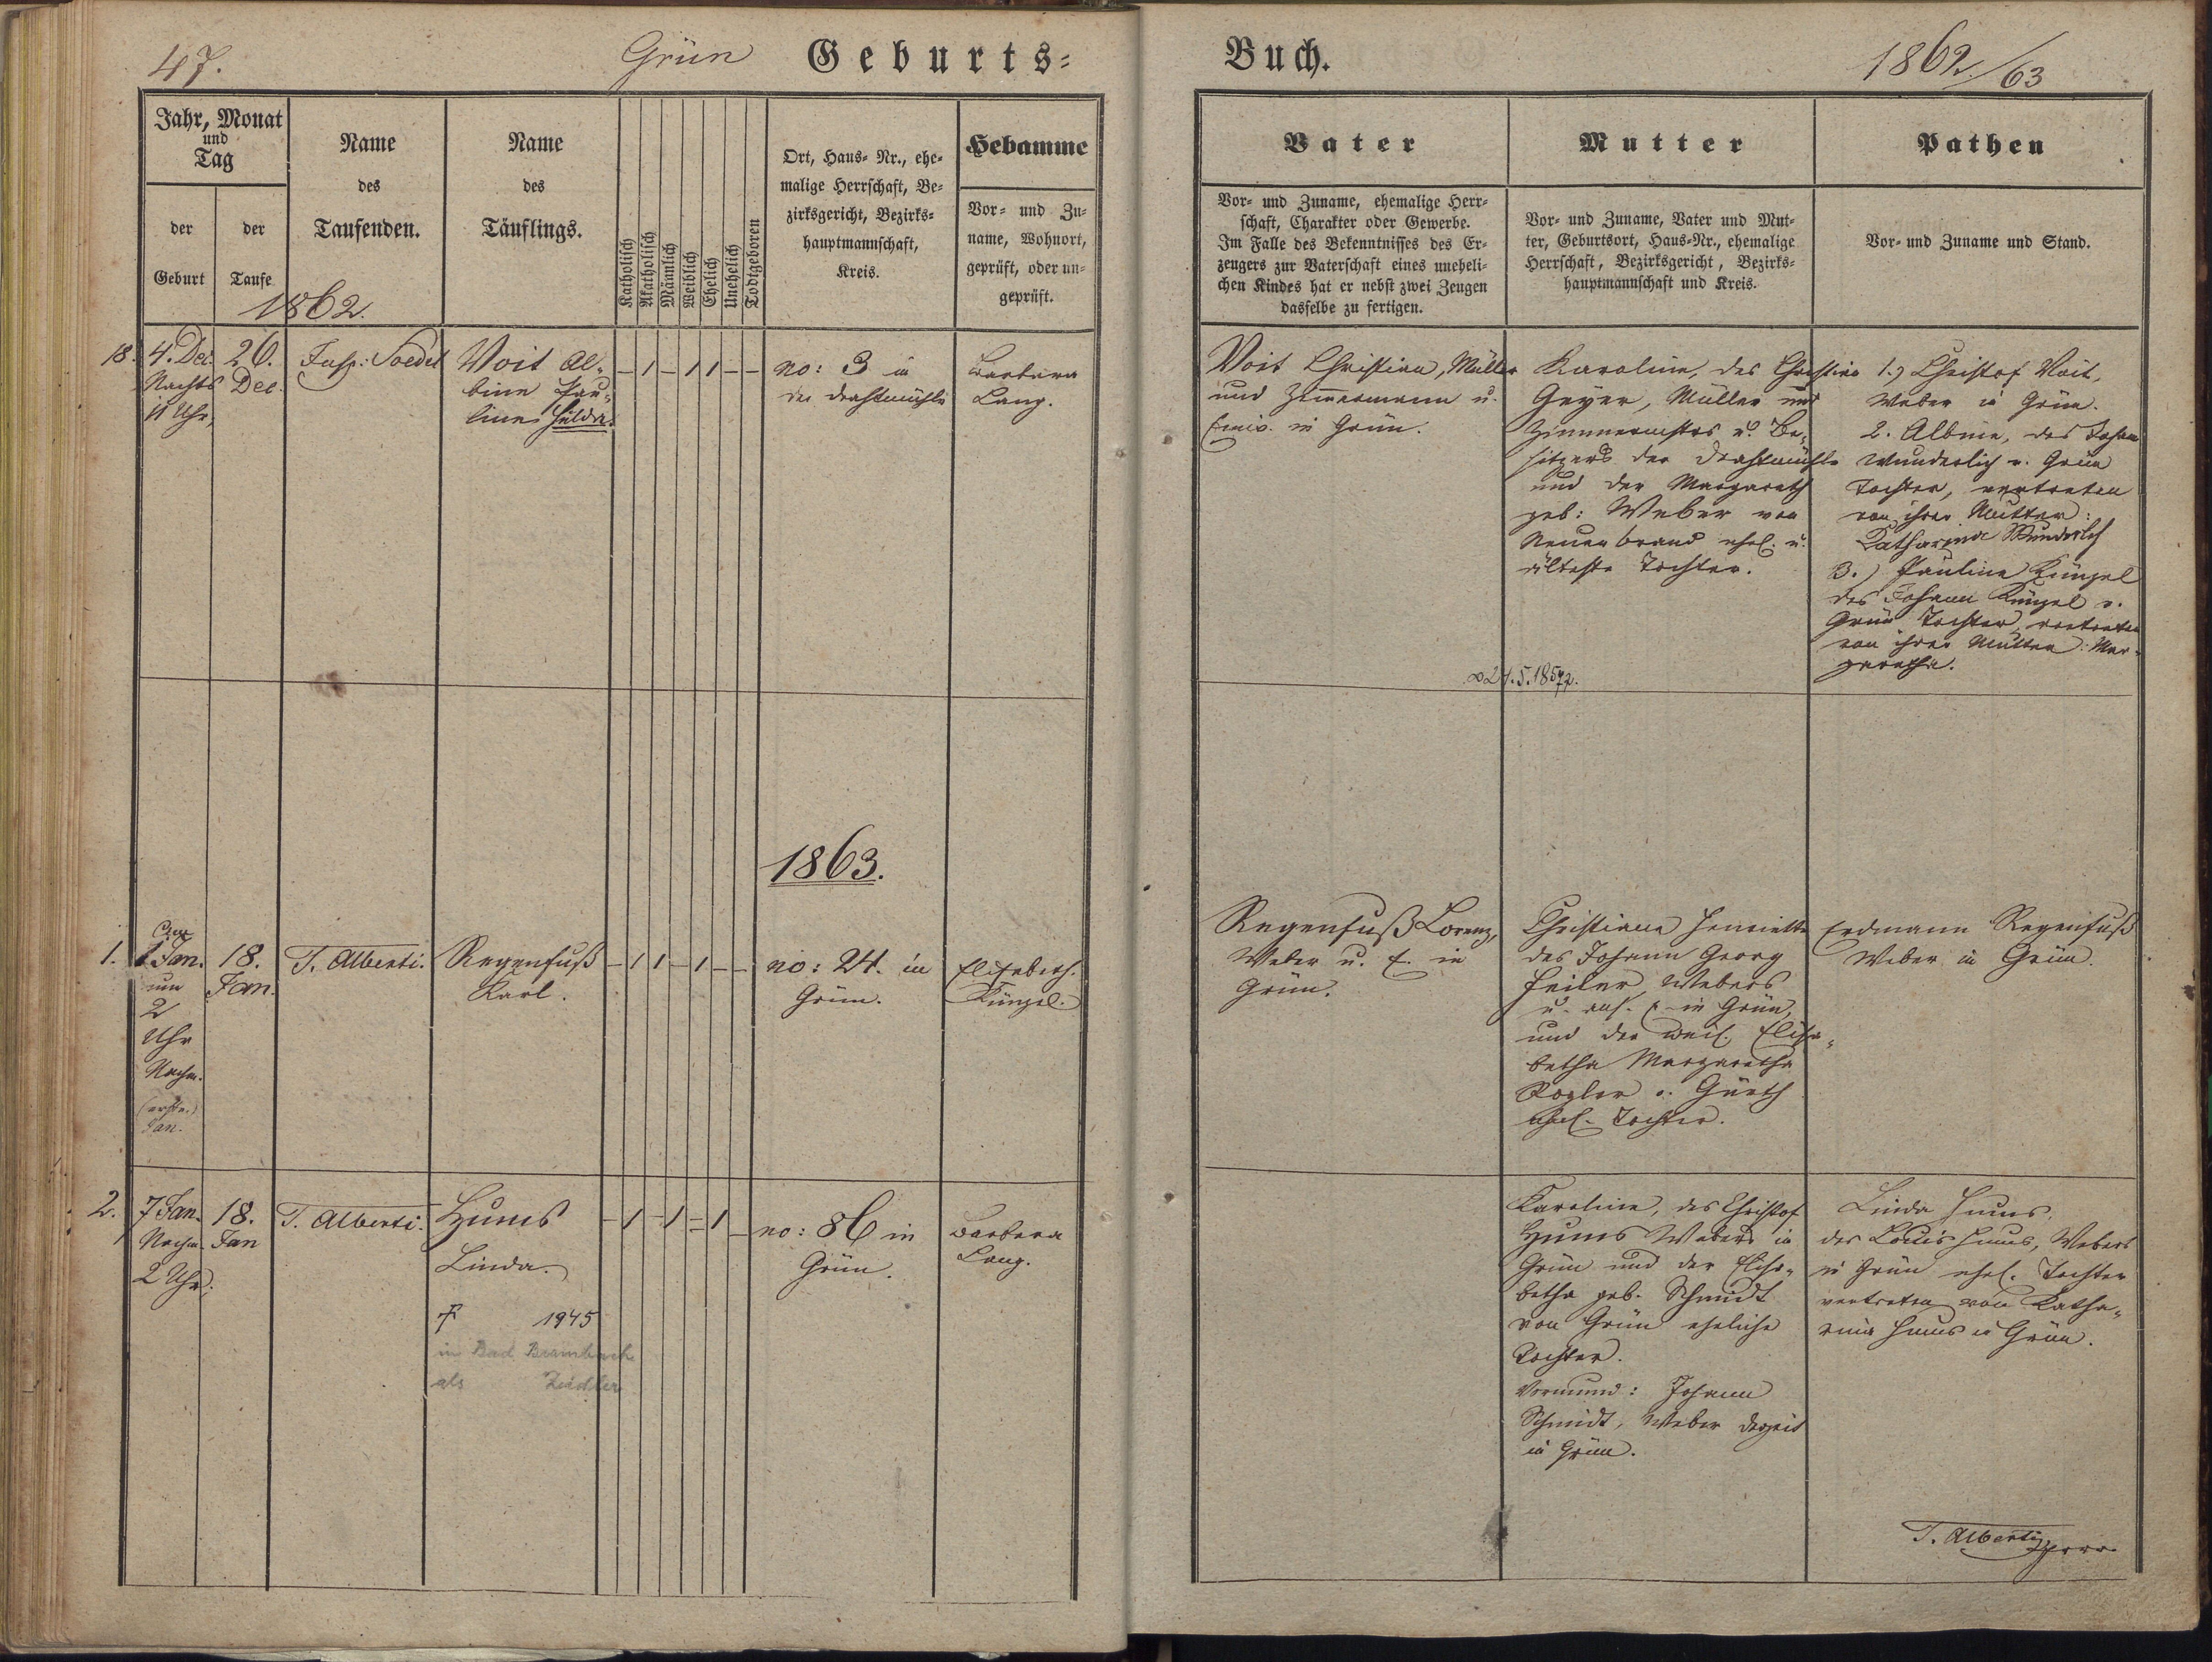 47.
Grün
Geburts=
Jahr, Monat
und
Tag
der
Geburt
der
Taufe
1862.
Name
des
Taufenden.
Name
des
Täuflings.
Katholisch
Akatholisch
Männlich
Weiblich
Ehelich
Unehelich
Todtgeboren
Ort, Haus- Nr., ehe-
malige Herrschaft, Be-
zirksgericht, Bezirks-
hauptmannschaft,
Kreis.
Hebamme
Vor- und Zu-
name, Wohnort,
geprüft, oder un-
geprüft.
18.
4. Dec.
Nachts
11 Uhr,
26.
Dec.
Insp: Soedel
Voit Al-
bine Pau-
line Hilda.
– 1 – 1 1 – –
no: 3 in
der Drahtmühle
Barbara
Lang.
1863.
1.
1 Jan.
um
2
Uhr
Nachm.
(erste.)
Jan.
18.
Jan.
T. Alberti.
Regenfuß
Karl.
– 1 1 – 1 – –
no: 24. in
Grün.
Elisabeth.
Künzel.
2.
7 Jan.
Nachm.
2 Uhr.
18.
Jan
T. Alberti.
Hums
Linda.
1945
in Bad Brambach
als Zeidler
– 1 – 1 – 1 –
no: 86 in
Grün.
Barbara
Lang.
Buch.
1862/63
Vater
Vor- und Zuname, ehemalige Herr-
schaft, Charakter oder Gewerbe.
Im Falle des Bekenntnisses des Er-
zeugers zur Vaterschaft eines uneheli-
chen Kindes hat er nebst zwei Zeugen
dasselbe zu fertigen.
Mutter
Vor- und Zuname, Vater und Mut-
ter, Geburtsort, Haus-Nr., ehemalige
Herrschaft, Bezirksgericht, Bezirks-
hauptmannschaft und Kreis.
Pathen
Vor- und Zuname und Stand.
Voit Christian, Müller
und Zimmermann u.
Einw. in Grün.
Karoline, des Christian
Geyer, Müller und
Zimmermstrs u. Be-
sitzers der Drahtmühle
und der Margareth
geb: Weber von
Neuenbrand ehel. u.
älteste Tochter.
∞ 24.5.1857
1.) Christof Voit,
Weber in Grün.
2. Albine, des Johann
Wunderlich v. Grün
Tochter, vertreten
von ihrer Mutter:
Katharina Wunderlich
3.) Pauline Künzel
des Johann Künzel v.
Grün Tochter, vertreten
von ihrer Mutter: Mar-
garetha.
Regenfuß Lorenz,
Weber u. E. in
Grün.
Christiane Henriette
des Johann Georg
Feiler, Webers
u. ans. E. in Grün,
und der weil. Elisa-
betha Margaretha
Kogler v. Gürth
ehel. Tochter.
Erdmann Regenfuß
Weber in Grün.
Karoline, des Christof
Hums Webers in
Grün und der Elisa-
betha geb. Schmidt
von Grün eheliche
Tochter.
Vormund: Johann
Schmidt, Weber derzeit
in Grün.
Linda Hums,
des Louis Hums, Webers
in Grün ehel. Tochter
vertreten von Katha-
rina Hums in Grün.
T. Alberti